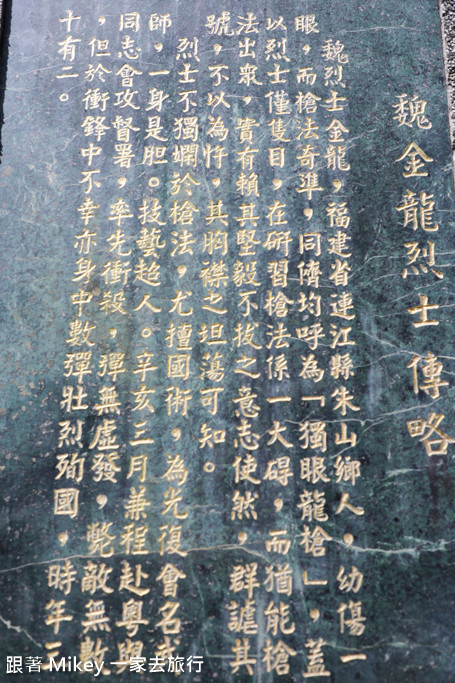 魏金龍烈士傳略
魏烈士金龍，福建省連江縣朱山鄉人，幼傷一
眼，而槍法奇準，同儕均呼為「獨眼龍槍」，蓋
以烈士僅隻目，在研習槍法係一大碍，而猶能槍
法出衆，實有賴其堅毅不拔之意志使然，群謔其
號，不以為忤，其胸襟之坦蕩可知。
烈士不獨嫻於槍法，尤擅國術，為光復會名武
師，一身是胆。技藝超人。辛亥三月兼程赴粵與
同志會攻督署，率先衝殺，彈無虛發，斃敵無數
，但於衝鋒中不幸亦身中數彈壯烈殉國，時年三
十有二。
跟著 Mikey 一家去旅行